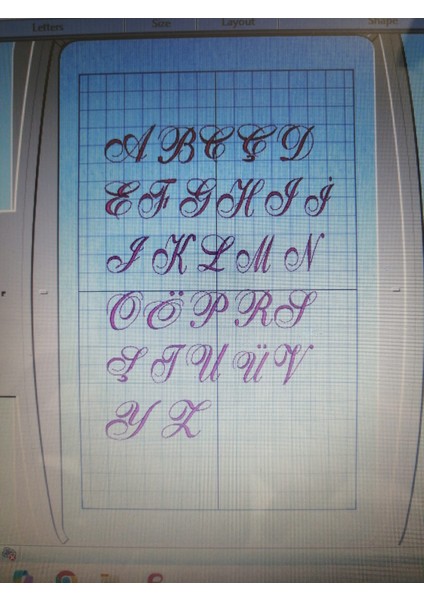 Letters Size Layout Shape
A B C Ç D
E F G H I İ
J K L M N
O Ö P R S
Ş T U Ü V
Y Z